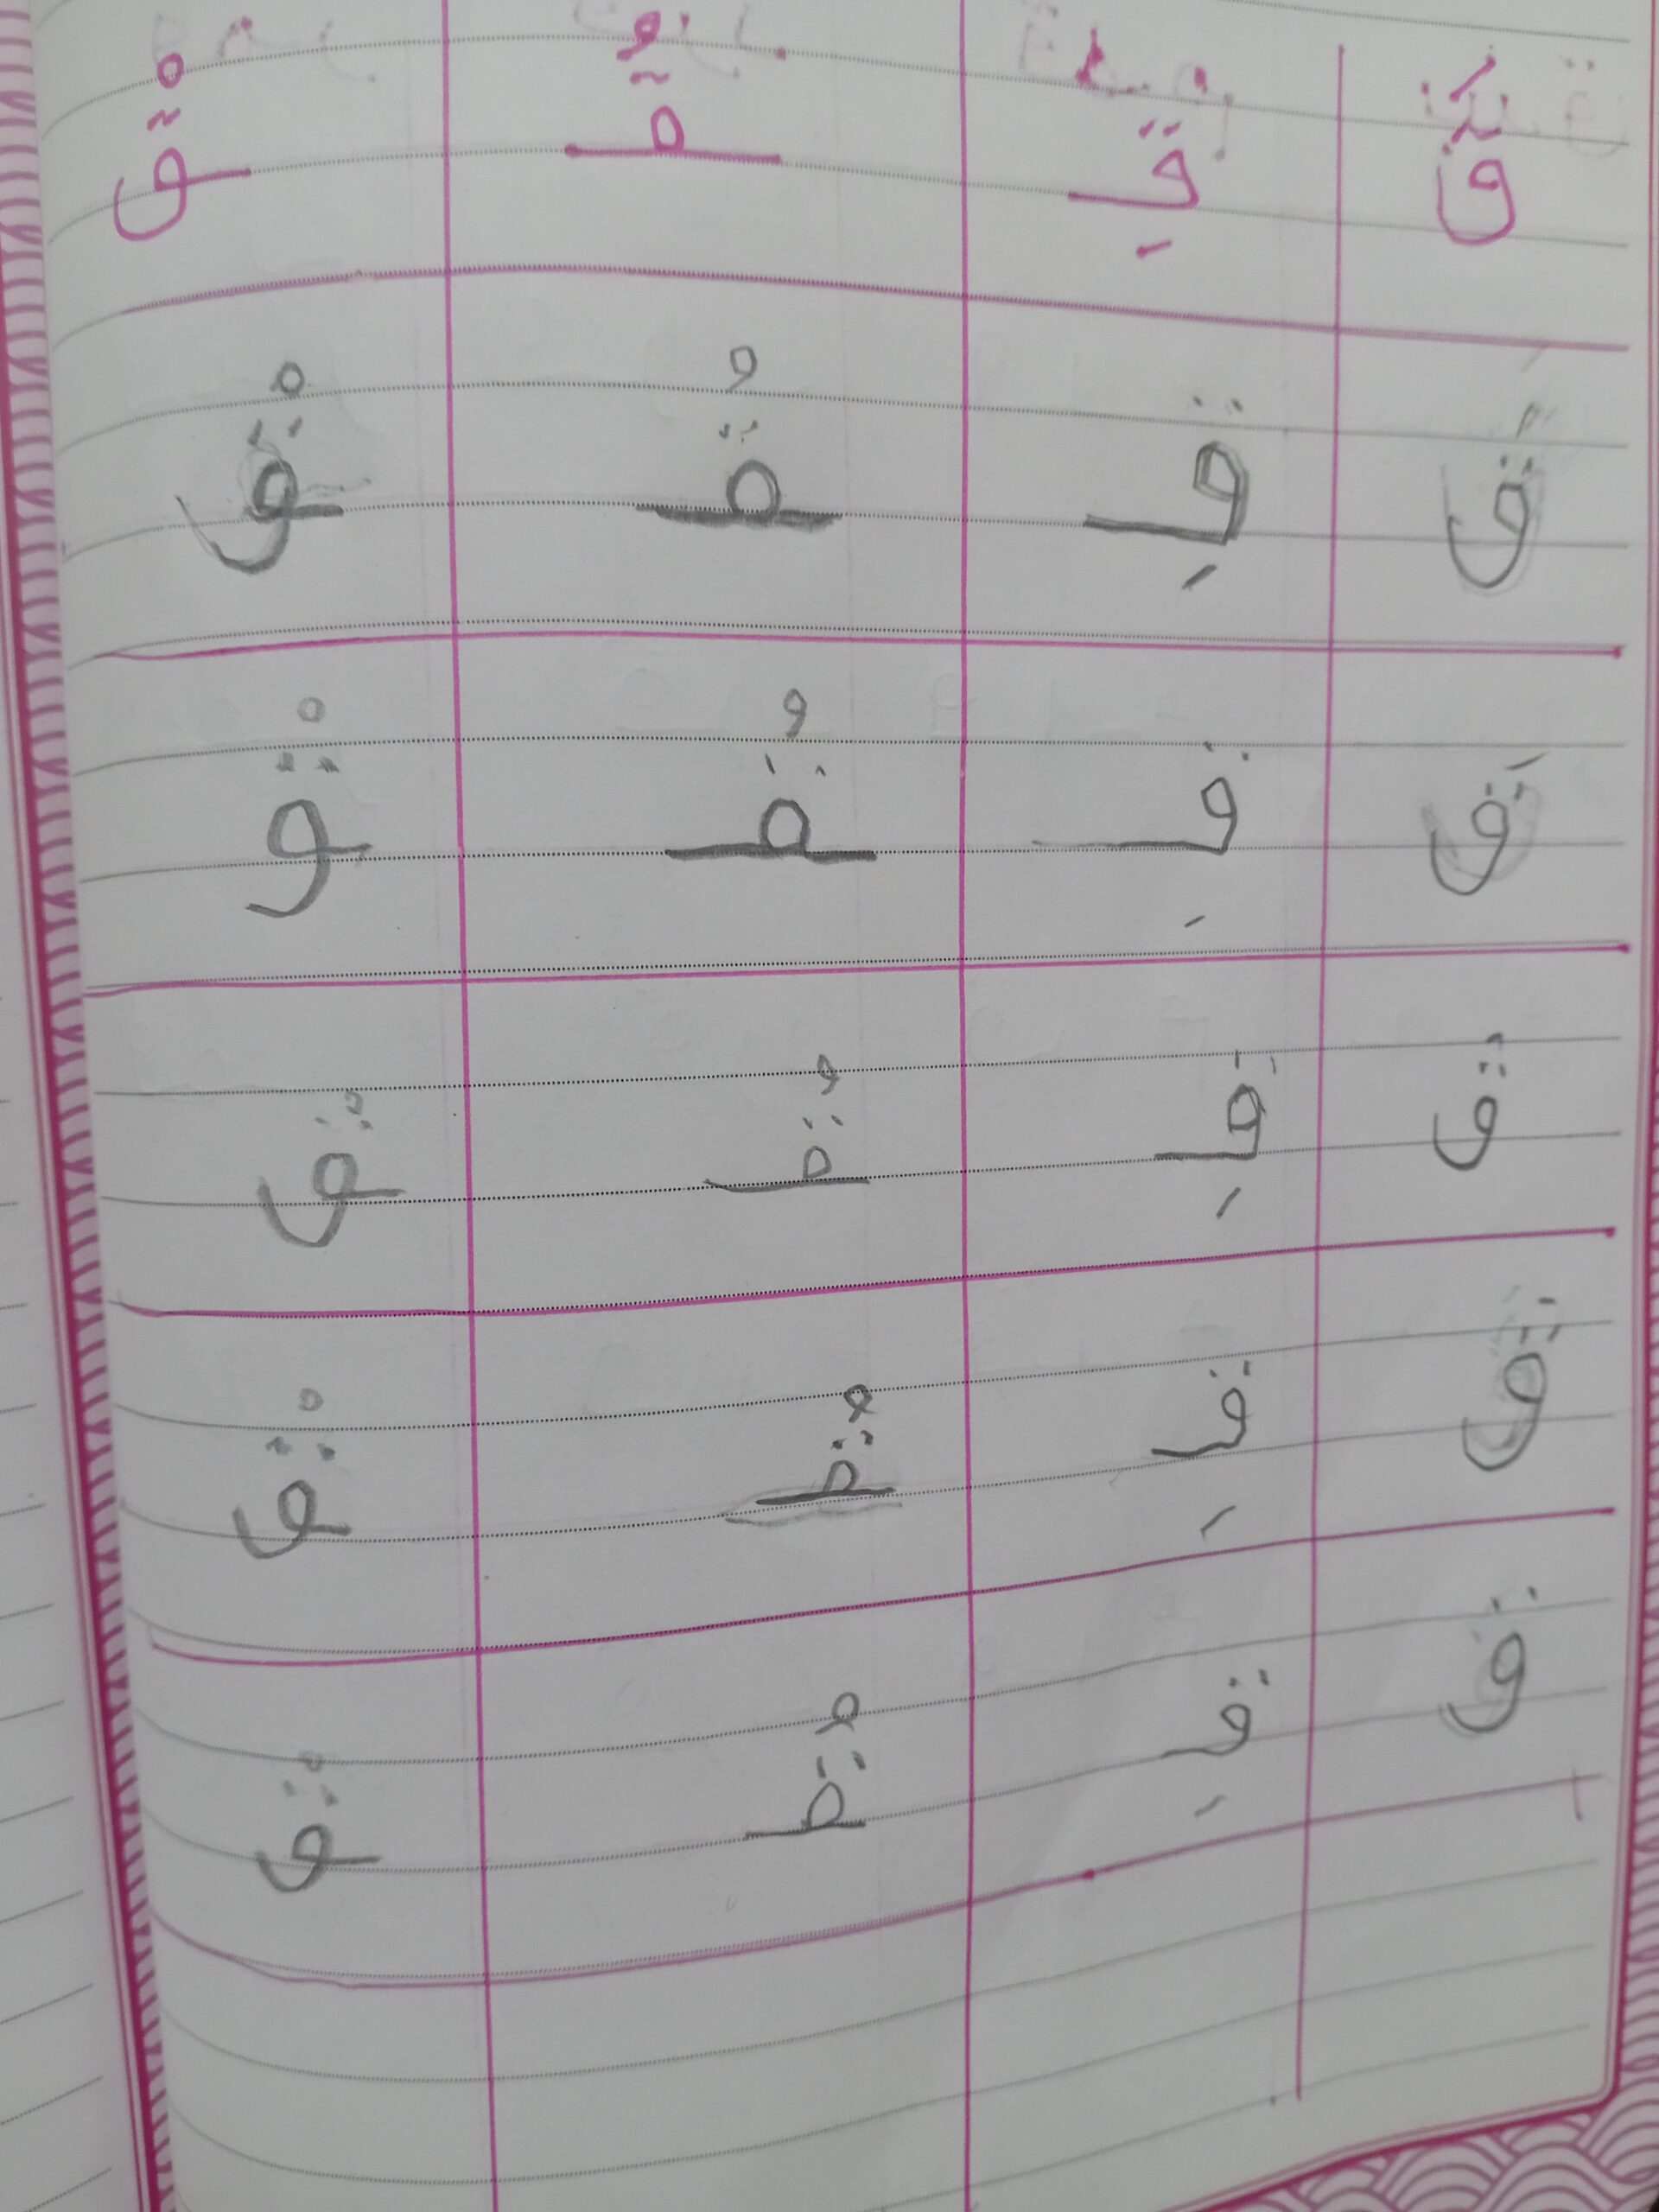 قَ قِـ ـقُـ ـقْ
قَ قِـ ـقُـ ـقْ
قَ قِـ ـقُـ ـقْ
قَ قِـ ـقُـ ـقْ
قَ قِـ ـقُـ ـقْ
ق قِـ ـقُـ ـقْ